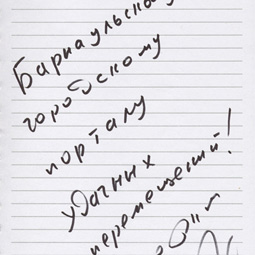 Барнаульскому
городскому
порталу
удачных
перемещений!